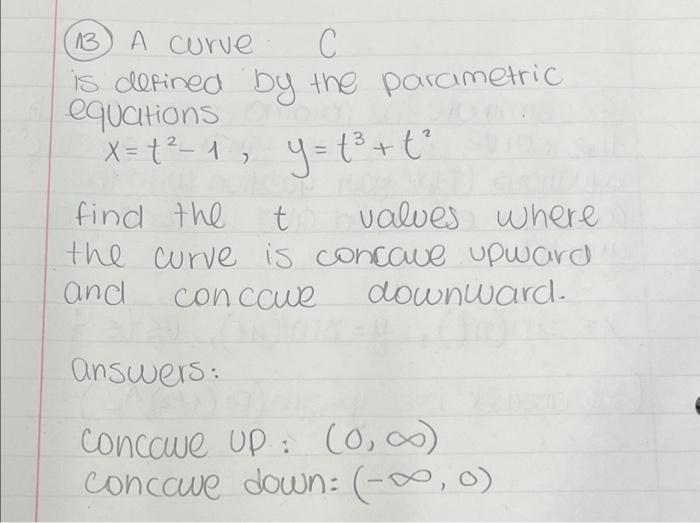 13 A curve C
is defined by the parametric
equations
x = t² - 1, y = t³ + t²
find the t values where
the curve is concave upward
and concave downward.
answers:
concave up: (0, ∞)
concave down: (-∞, 0)